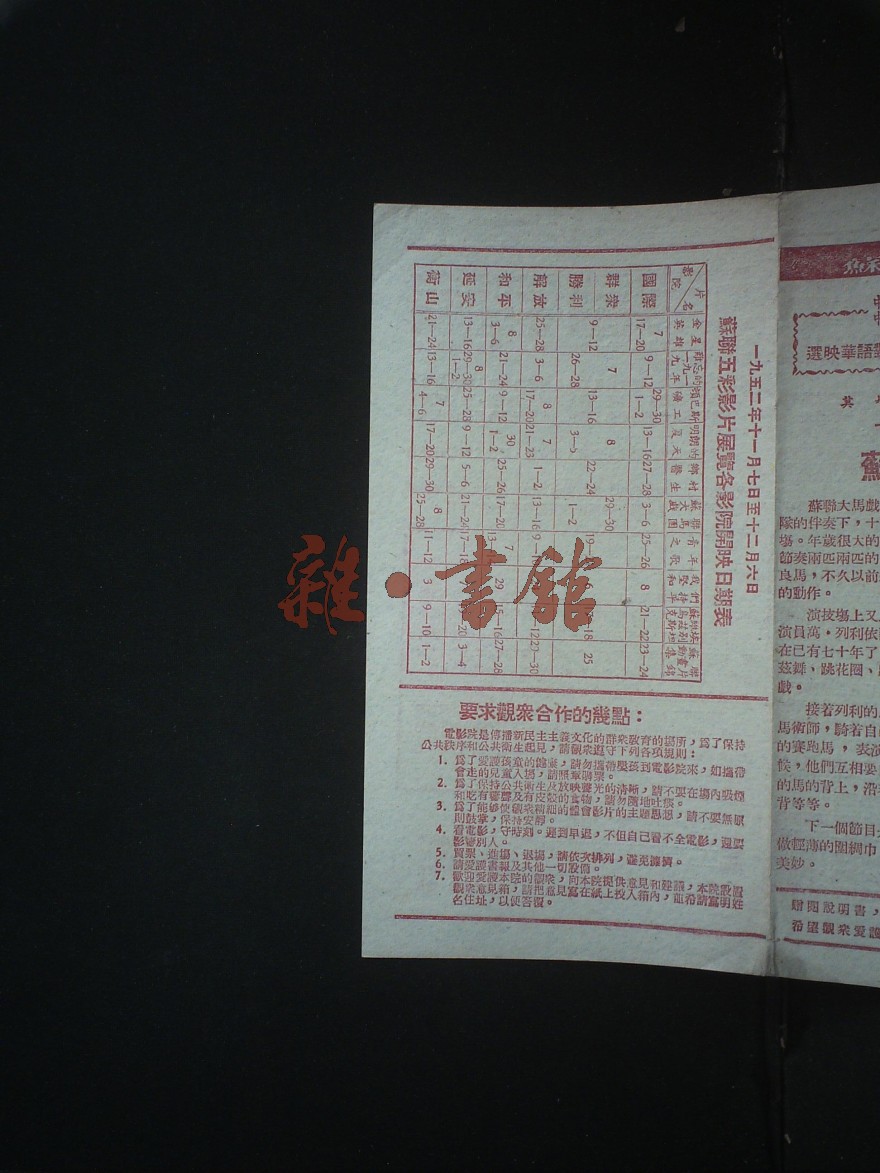 一九五二年十一月七日至十二月六日
蘇聯五彩影片展覽各影院開映日期表
片名
影院
金星英雄
難忘的一九一九年
頓巴斯礦工
明朗的夏天
鄉村醫生
蘇聯大馬戲團
青年之歌
我們堅持和平
國際 7 17—20 9—12 29—30 1—2 13—16 27—28 3—6 25—26 8 21—22 23—24
群衆 9—12 7 13—16 8 22—24 29—30
勝利 26—28 3—5 1—2 25
解放 25—28 3—6 8 17—20 7 21—23 1—2 13—16
和平 8 3—6 21—24 9—12 30 1—2 25—26 17—20 7 29 15—16 27—28
延安 13—16 8 29—30 1—2 25—28 9—12 5—6 21—24 17—18 3—4
衡山 21—24 13—16 7 4—6 17—20 29—30 8 25—28 11—12 3 9—10 1—2
要求觀衆合作的幾點：
電影院是傳播新民主主義文化的群衆敎育的場所，爲了保持
公共秩序和公共衛生起見，請觀衆遵守下列各項規則：
1．爲了愛護孩童的健康，請勿攜帶嬰孩到電影院來，如攜帶
會走的兒童入場，請照章購票。
2．爲了保持公共衛生及放映聲光的清晰，請不要在場內吸煙
和吃有響聲及有皮殼的食物，請勿隨地吐痰。
3．爲了能够使觀衆精細的體會影片的主題思想，請不要無原
則鼓掌，保持安靜。
4．看電影，守時刻。遲到早退，不但自己看不全電影，還要
影響別人。
5．買票、進場、退場，請依次排列，避免擁擠。
6．請愛護書報及其他一切設備。
7．歡迎愛護本院的觀衆，向本院提供意見和建議，本院設置
觀衆意見箱，請把意見寫在紙上投入箱內，並希請寫明姓
名住址，以便答覆。
選映華語
蘇
蘇聯大馬戲
隊的伴奏下，十
場。年歲很大的
節奏兩匹兩匹的
良馬，不久以前
的動作。
演技場上又
演員萬·列利依
在已有七十年了
茲舞、跳花圈、
戲。
接着列利的
馬術師，騎着自
的賽跑馬，表演
候，他們互相要
的馬的背上，沿
背等等。
下一個節目
做輕薄的圍綢巾
美妙。
贈閱說明書，
希望觀衆愛護
雜·書館